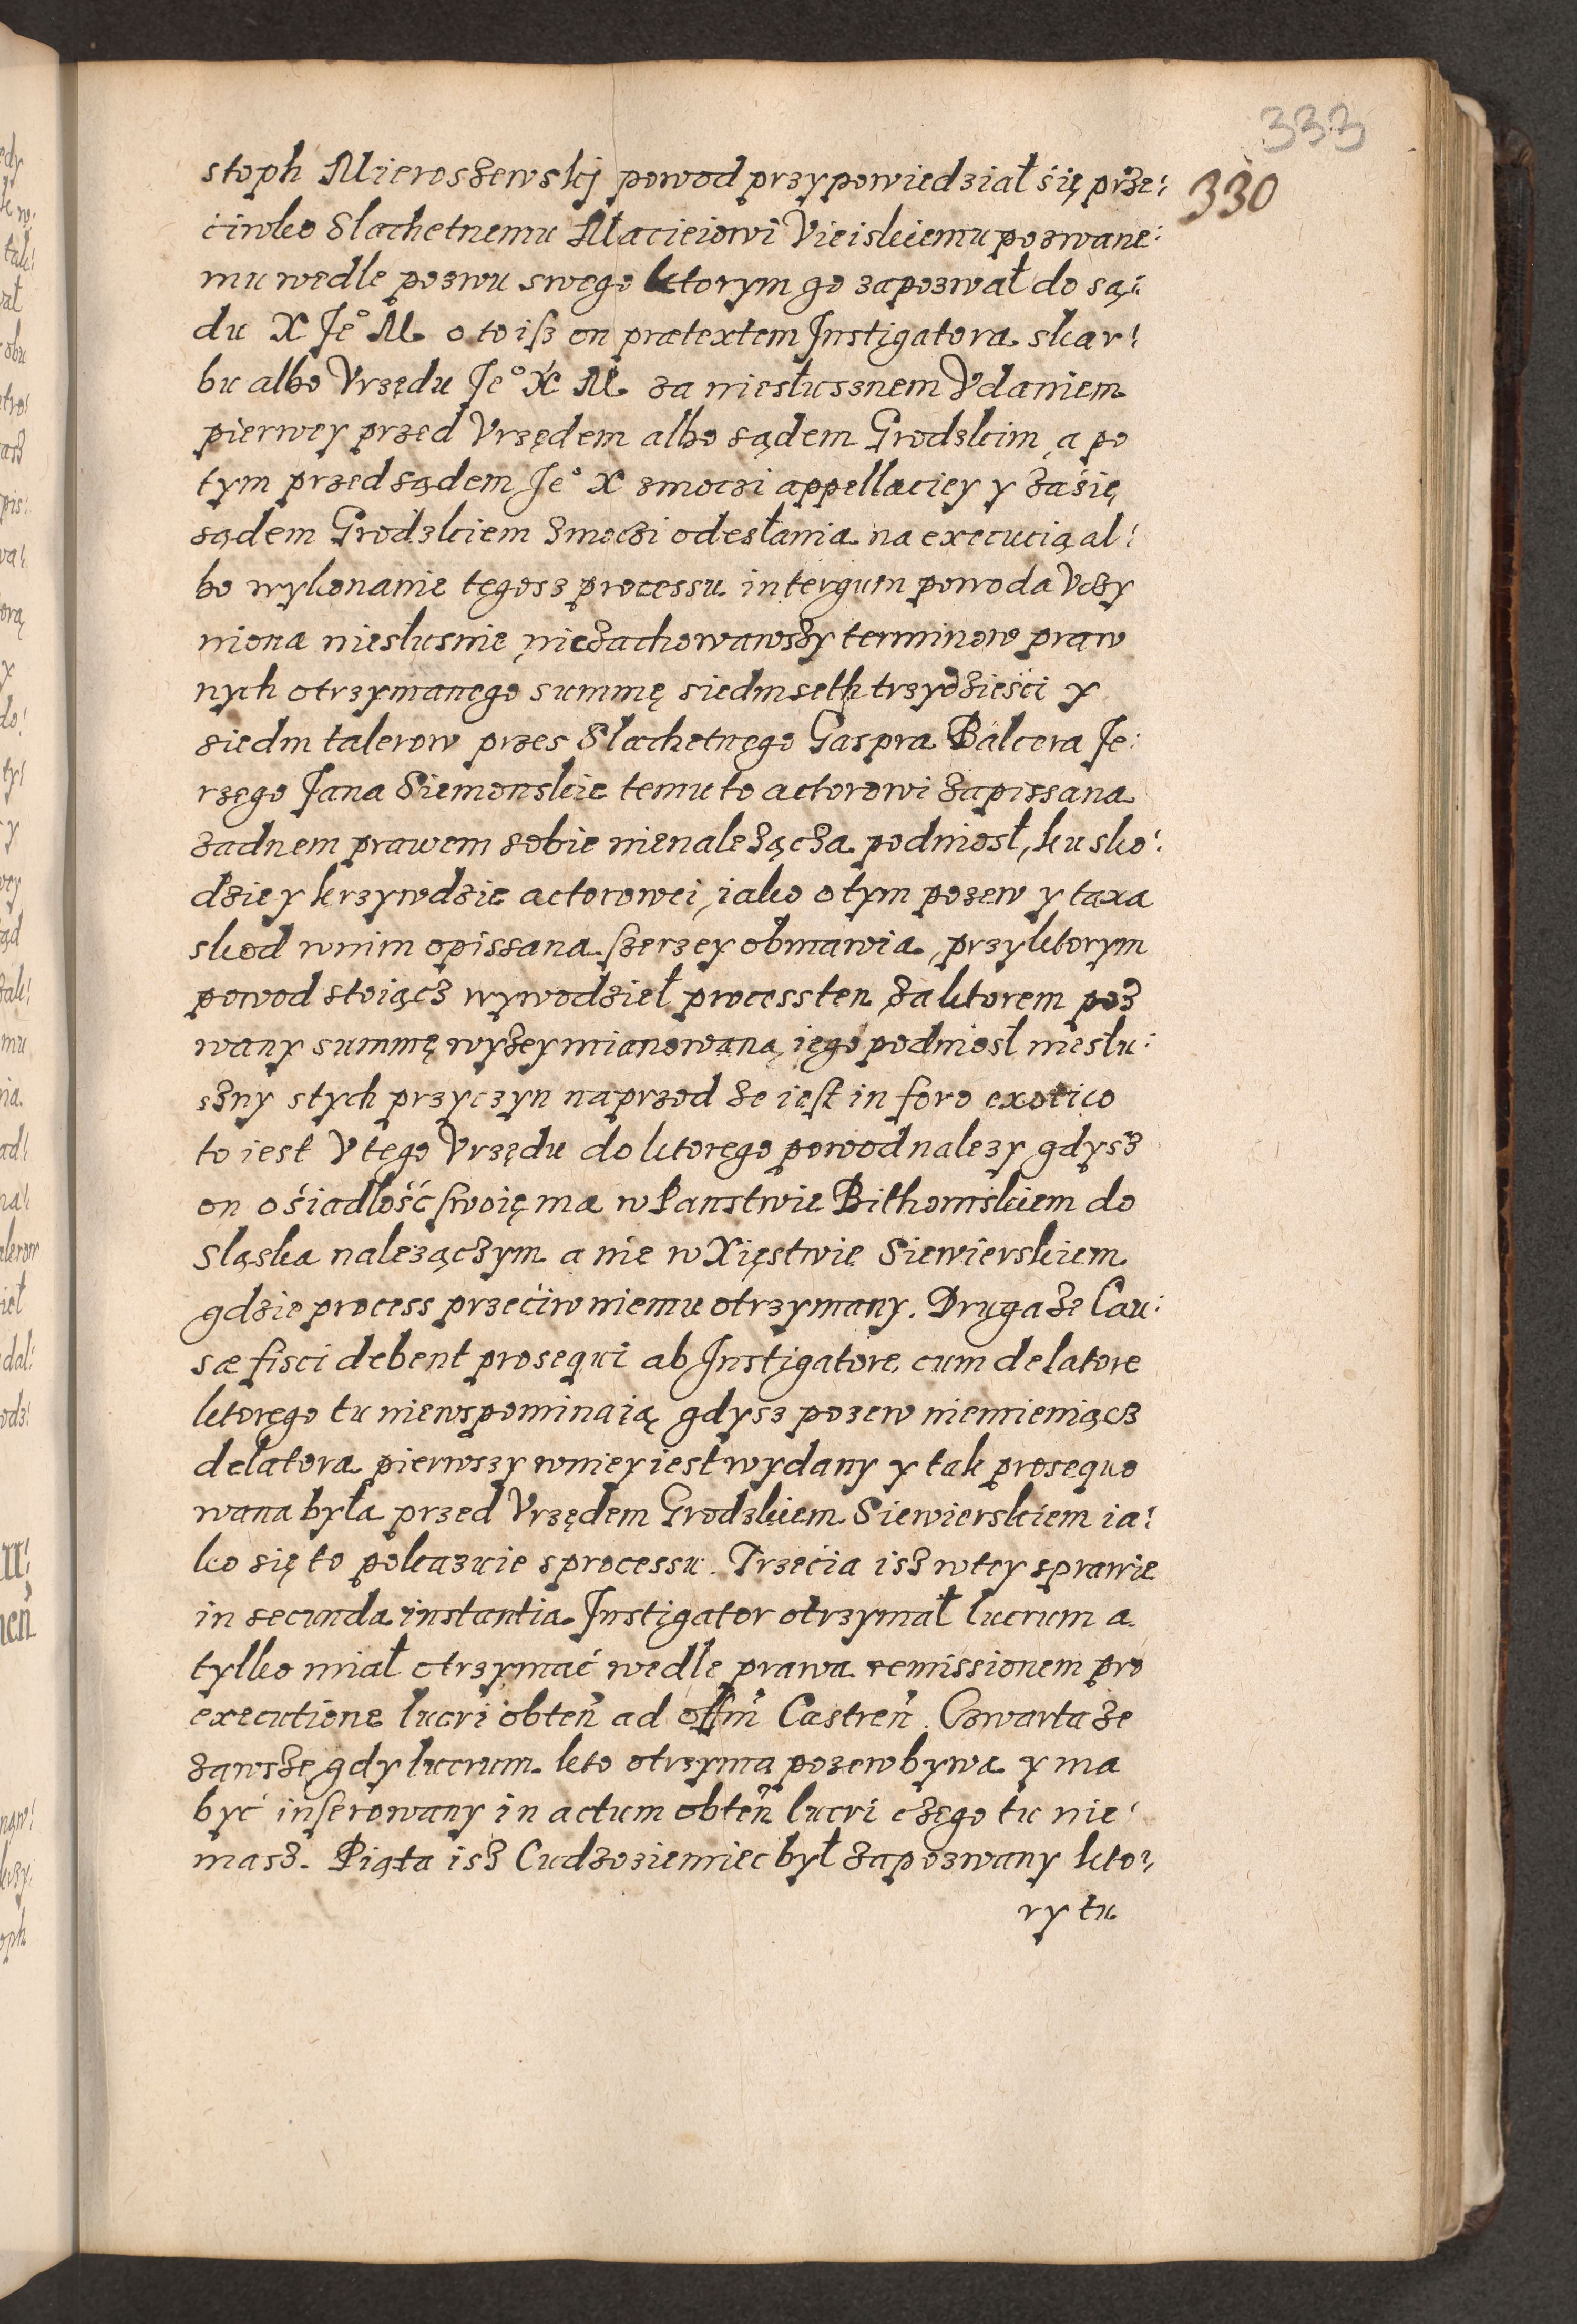 333
330
stoph Mieroszewskj powod przypowiedział się prze:
ćiwko Slachetnemu Macieiowi Vieiskiemu pozwane:
mu wedle pozwu swego ktorym go zapozwał do są:
du X Je° M o to isz on prætextem Instigatora skar:
bu albo Vrzędu Je° X M za niesłusznem Vdaniem
pierwey przed Vrzędem albo sądem Grodzkim, a po
tym przed sądem Je° X zmoczi appellaciey y zasię
sądem Grodzkiem zmoczi odesłania na execucią al:
bo wykonanie tęgosz processu in tergum powoda Vczy
niona nieslusnie niezachowawszy terminow praw
nych otrzymanego summę siedmseth trzydzieści y
siedm talerow przes Slachetnęgo Gaspra Balcera Je:
rzęgo Jana Siemonskie temu to actorowi zapissana
zadnem prawem sobie nienależącza podniosł, ku sko:
dzie y krzywdzie actorowei, iako o tym pozew y taxa
skod wnim opissana szerzey obmawia, przyktorym
powod stoiącz wywodzieł process ten za ktorem poz
wany summę wyżey mianowaną iego podniosł niesłu:
szny stych przyczyn naprzod że iest in foro exotico
to iest V tego Vrzędu do ktoręgo powod należy gdysz
on ośiadłość swoię ma w Panstwie Bithomskiem do
Sląska należączym a nie w Xięstwie Siewierskiem
gdzie process przećiw niemu otrzymany. Druga że Cau:
sæ fisci debent prosequi ab Instigatore cum delatore
ktoręgo tu niewspominaią gdysz pozew niemieniącz
delatora pierwszy wniey iest wydany y tak prosequo
wana była przed Vrzędem Grodzkiem Siewierskiem ia:
ko się to pokazuie s processu. Trzećia isz wtey sprawie
in secunda instantia Instigator otrzymał lucrum a
tylko miał otrzymać wedle prawa remissionem pro
executione lucri obteñ ad offm̃ Castreñ. Czwarta że
zawsze gdy lucrum kto otrzyma pozew bywa y ma
być inserowany in actum obteñ lucri częgo tu nie:
masz. Piąta isz Cudzoziemiec był zapozwany kto:
ry tu